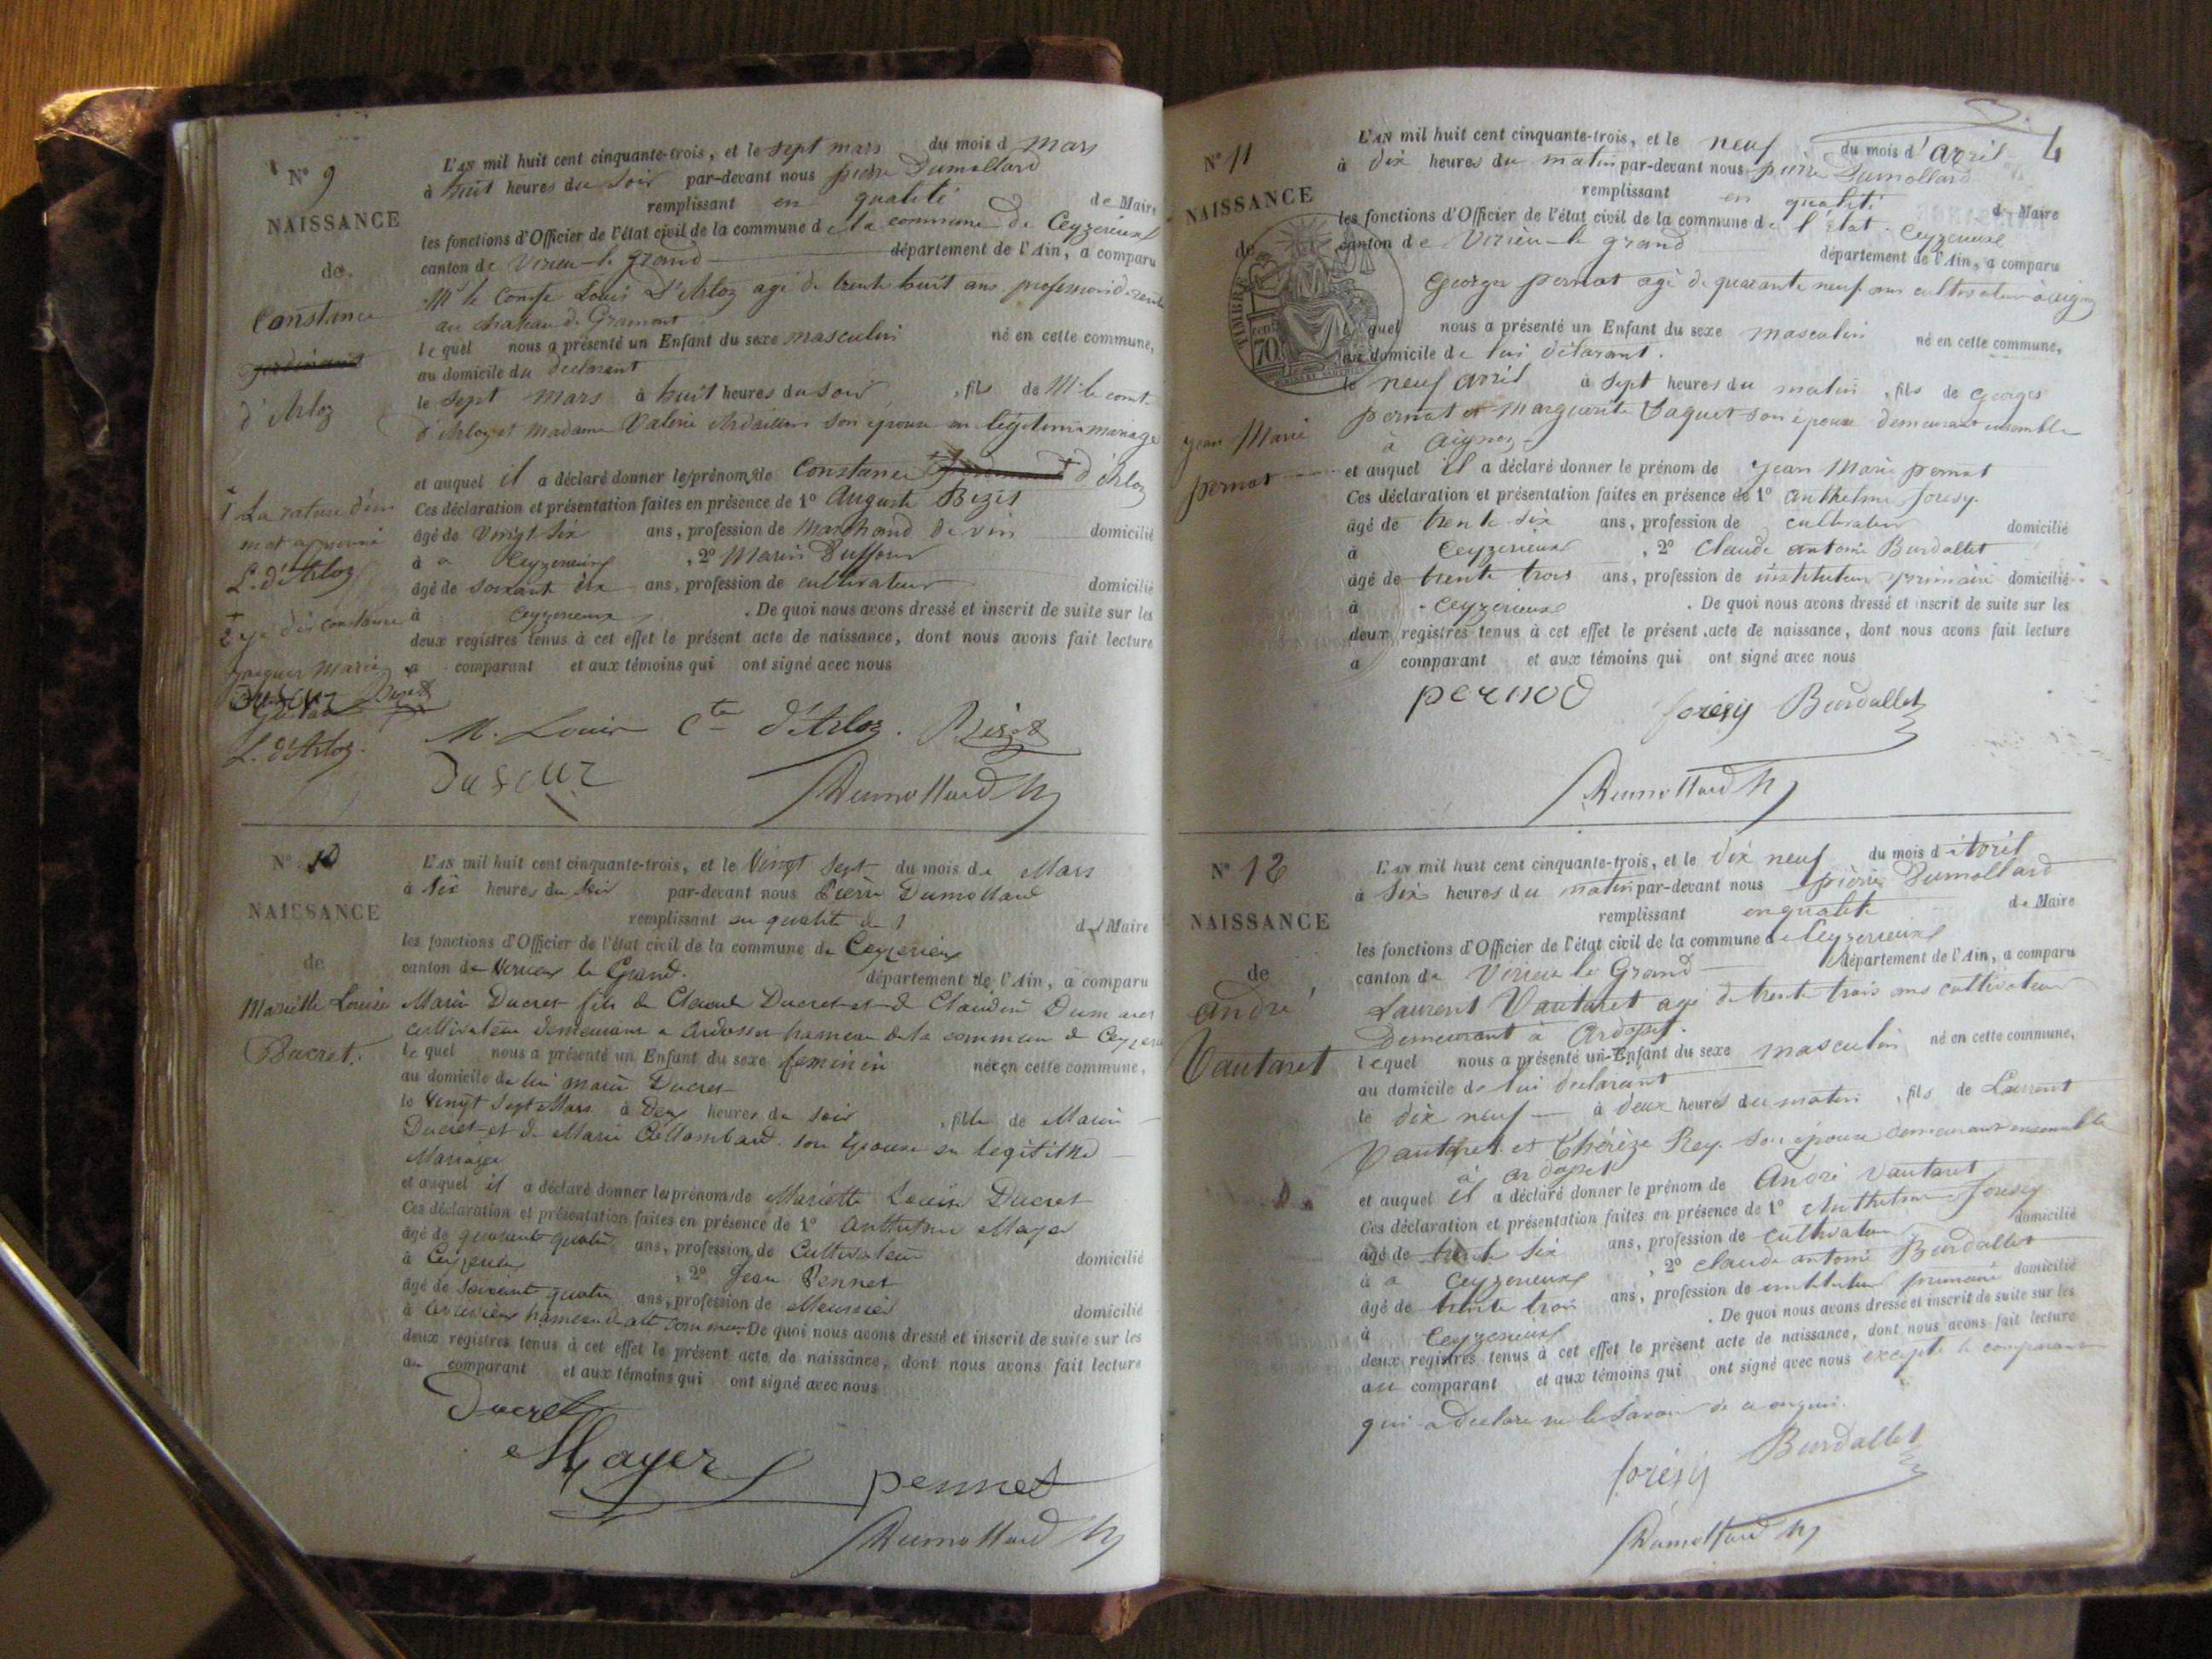 N° 9
NAISSANCE
de
Constance
d'Arloz
L'AN mil huit cent cinquante-trois, et le sept mars du mois d mars
à huit heures du soir par-devant nous pierre Dumollard
remplissant en qualité de Maire
les fonctions d'Officier de l'état civil de la commune de la commune de Ceyzerieux
canton de Virieu-le grand département de l'Ain, a comparu
Mr le Comte Louis D'Arloz agé de trente huit ans profession de
au chateau de Gramont
lequel nous a présenté un Enfant du sexe masculin né en cette commune,
au domicile du declarant
le sept mars à huit heures du soir, fils de Mr le comt
d'Arloz et Madame Valérie son épouse en légitime mariage
et auquel il a déclaré donner le prénom de Constance d'Arloz
Ces déclaration et présentation faites en présence de 1° Auguste Bizet
âgé de vingt six ans, profession de Marchand de vin domicilié
à a Ceyzerieux, 2° Marin Duffour
âgé de soixante dix ans, profession de cultivateur domicilié
à Ceyzerieux. De quoi nous avons dressé et inscrit de suite sur les
deux registres tenus à cet effet le présent acte de naissance, dont nous avons fait lecture
a comparant et aux témoins qui ont signé avec nous
1 La rature d'un
mot approuvé
L. d'Arloz
2
jacques Marie
L. d'Arloz.
M. Louis Cte d'Arloz. Bizet
Dumollard
N° 10
NAISSANCE
de
Mariette Louise
Ducret.
L'AN mil huit cent cinquante-trois, et le Vingt Sept du mois de Mars
à Six heures du soir par-devant nous Pierre Dumollard
remplissant en qualité de Maire
les fonctions d'Officier de l'état civil de la commune de Ceyzerieux
canton de Virieux le Grand. département de l'Ain, a comparu
Marin Ducret fils de Claude Ducret et de Claudine
cultivateur demeurant a Ardosset hameau de la commune de
lequel nous a présenté un Enfant du sexe feminin née en cette commune,
au domicile de lui marin Ducret
le Vingt Sept Mars à Deux heures du soir, fille de Marin
Ducret et de Marie son Epouse en legitime
Mariage
et auquel il a déclaré donner les prénoms de Mariette Louise Ducret
Ces déclaration et présentation faites en présence de 1° Anthelme Mayer
âgé de quarante quatre ans, profession de Cultivateur domicilié
à Ceyzerieu, 2° Jean Pennet
âgé de Soixante quatre ans, profession de Meunier domicilié
à hameau de De quoi nous avons dressé et inscrit de suite sur les
deux registres tenus à cet effet le présent acte de naissance, dont nous avons fait lecture
au comparant et aux témoins qui ont signé avec nous
Ducret
Mayer
pennet
Dumollard
4
N° 11
NAISSANCE
de
TIMBRE
jean Marie
pernat
L'AN mil huit cent cinquante-trois, et le neuf du mois d'avril
à dix heures du matin par-devant nous pierre Dumollard
remplissant en qualité de Maire
les fonctions d'Officier de l'état civil de la commune de l'état Ceyzerieux
canton de Virieu-le grand département de l'Ain, a comparu
Georges pernat agé de quarante neuf ans cultivateur à
lequel nous a présenté un Enfant du sexe masculin né en cette commune,
au domicile de lui déclarant.
le neuf avril à sept heures du matin, fils de georges
pernat et Marguerite son épouse demeurant ensemble
à Aignoz
et auquel il a déclaré donner le prénom de jean Marie pernat
Ces déclaration et présentation faites en présence de 1° anthelme foresy
âgé de trente six ans, profession de cultivateur domicilié
à Ceyzerieux, 2° Claude antoine Burdallet
âgé de trente trois ans, profession de instituteur primaire domicilié
à Ceyzerieux. De quoi nous avons dressé et inscrit de suite sur les
deux registres tenus à cet effet le présent acte de naissance, dont nous avons fait lecture
a comparant et aux témoins qui ont signé avec nous
pernod foresy Burdallet
Dumollard
N° 12
NAISSANCE
de
André
Vautaret
L'AN mil huit cent cinquante-trois, et le dix neuf du mois d'Avril
à Six heures du matin par-devant nous pierre Dumollard
remplissant en qualité de Maire
les fonctions d'Officier de l'état civil de la commune de Ceyzerieux
canton de Virieu le Grand département de l'Ain, a comparu
Laurent Vautaret agé de trente trois ans cultivateur
Demeurant à Ardosset.
lequel nous a présenté un Enfant du sexe masculin né en cette commune,
au domicile de lui déclarant
le dix neuf à deux heures du matin, fils de Laurent
Vautaret et Thérèze Rey son épouse demeurant ensemble
à ardosset
et auquel il a déclaré donner le prénom de André Vautaret
Ces déclaration et présentation faites en présence de 1° Anthelme foresy
âgé de trente six ans, profession de cultivateur domicilié
à a Ceyzerieux, 2° claude antoine Burdallet
âgé de trente trois ans, profession de instituteur primaire domicilié
à Ceyzerieux. De quoi nous avons dressé et inscrit de suite sur les
deux registres tenus à cet effet le présent acte de naissance, dont nous avons fait lecture
au comparant et aux témoins qui ont signé avec nous excepté le comparant
qui a déclaré ne le savoir de ce
foresy Burdallet
Dumollard